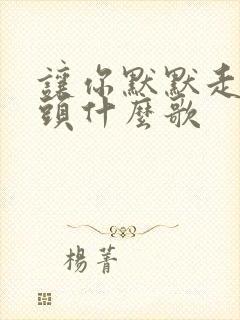 讓你默默走
頭什麼歌
楊菁